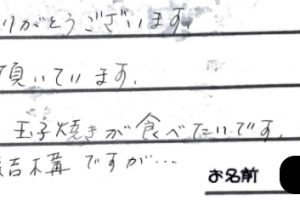 りがとうございます。
頂いています。
玉子焼きが食べたいです。
結構ですが…
お名前